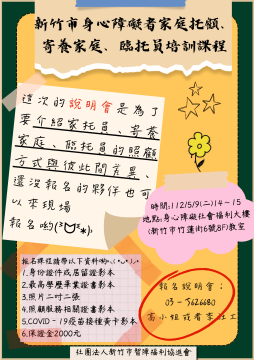 新竹市身心障礙者家庭托顧、
寄養家庭、臨托員培訓課程
這次的說明會是為了
要介紹家托員、寄養
家庭、臨托員的照顧
方式與彼此間差異、
還沒報名的夥伴也可
以來現場
報名喲
時間:112/5/9(二)14-15
地點:身心障礙社會福利大樓
(新竹市竹蓮街6號8F)教室
報名課程請帶以下資料喲
1.身份證件或居留證影本
2.最高學歷畢業證書影本
3.照片二吋二張
4.照顧服務相關證書影本
5.COVID-19疫苗接種黃卡影本
6.保證金2000元
報名說明會:
03-5626680
高小姐或者李社工
社團法人新竹市智障福利協進會